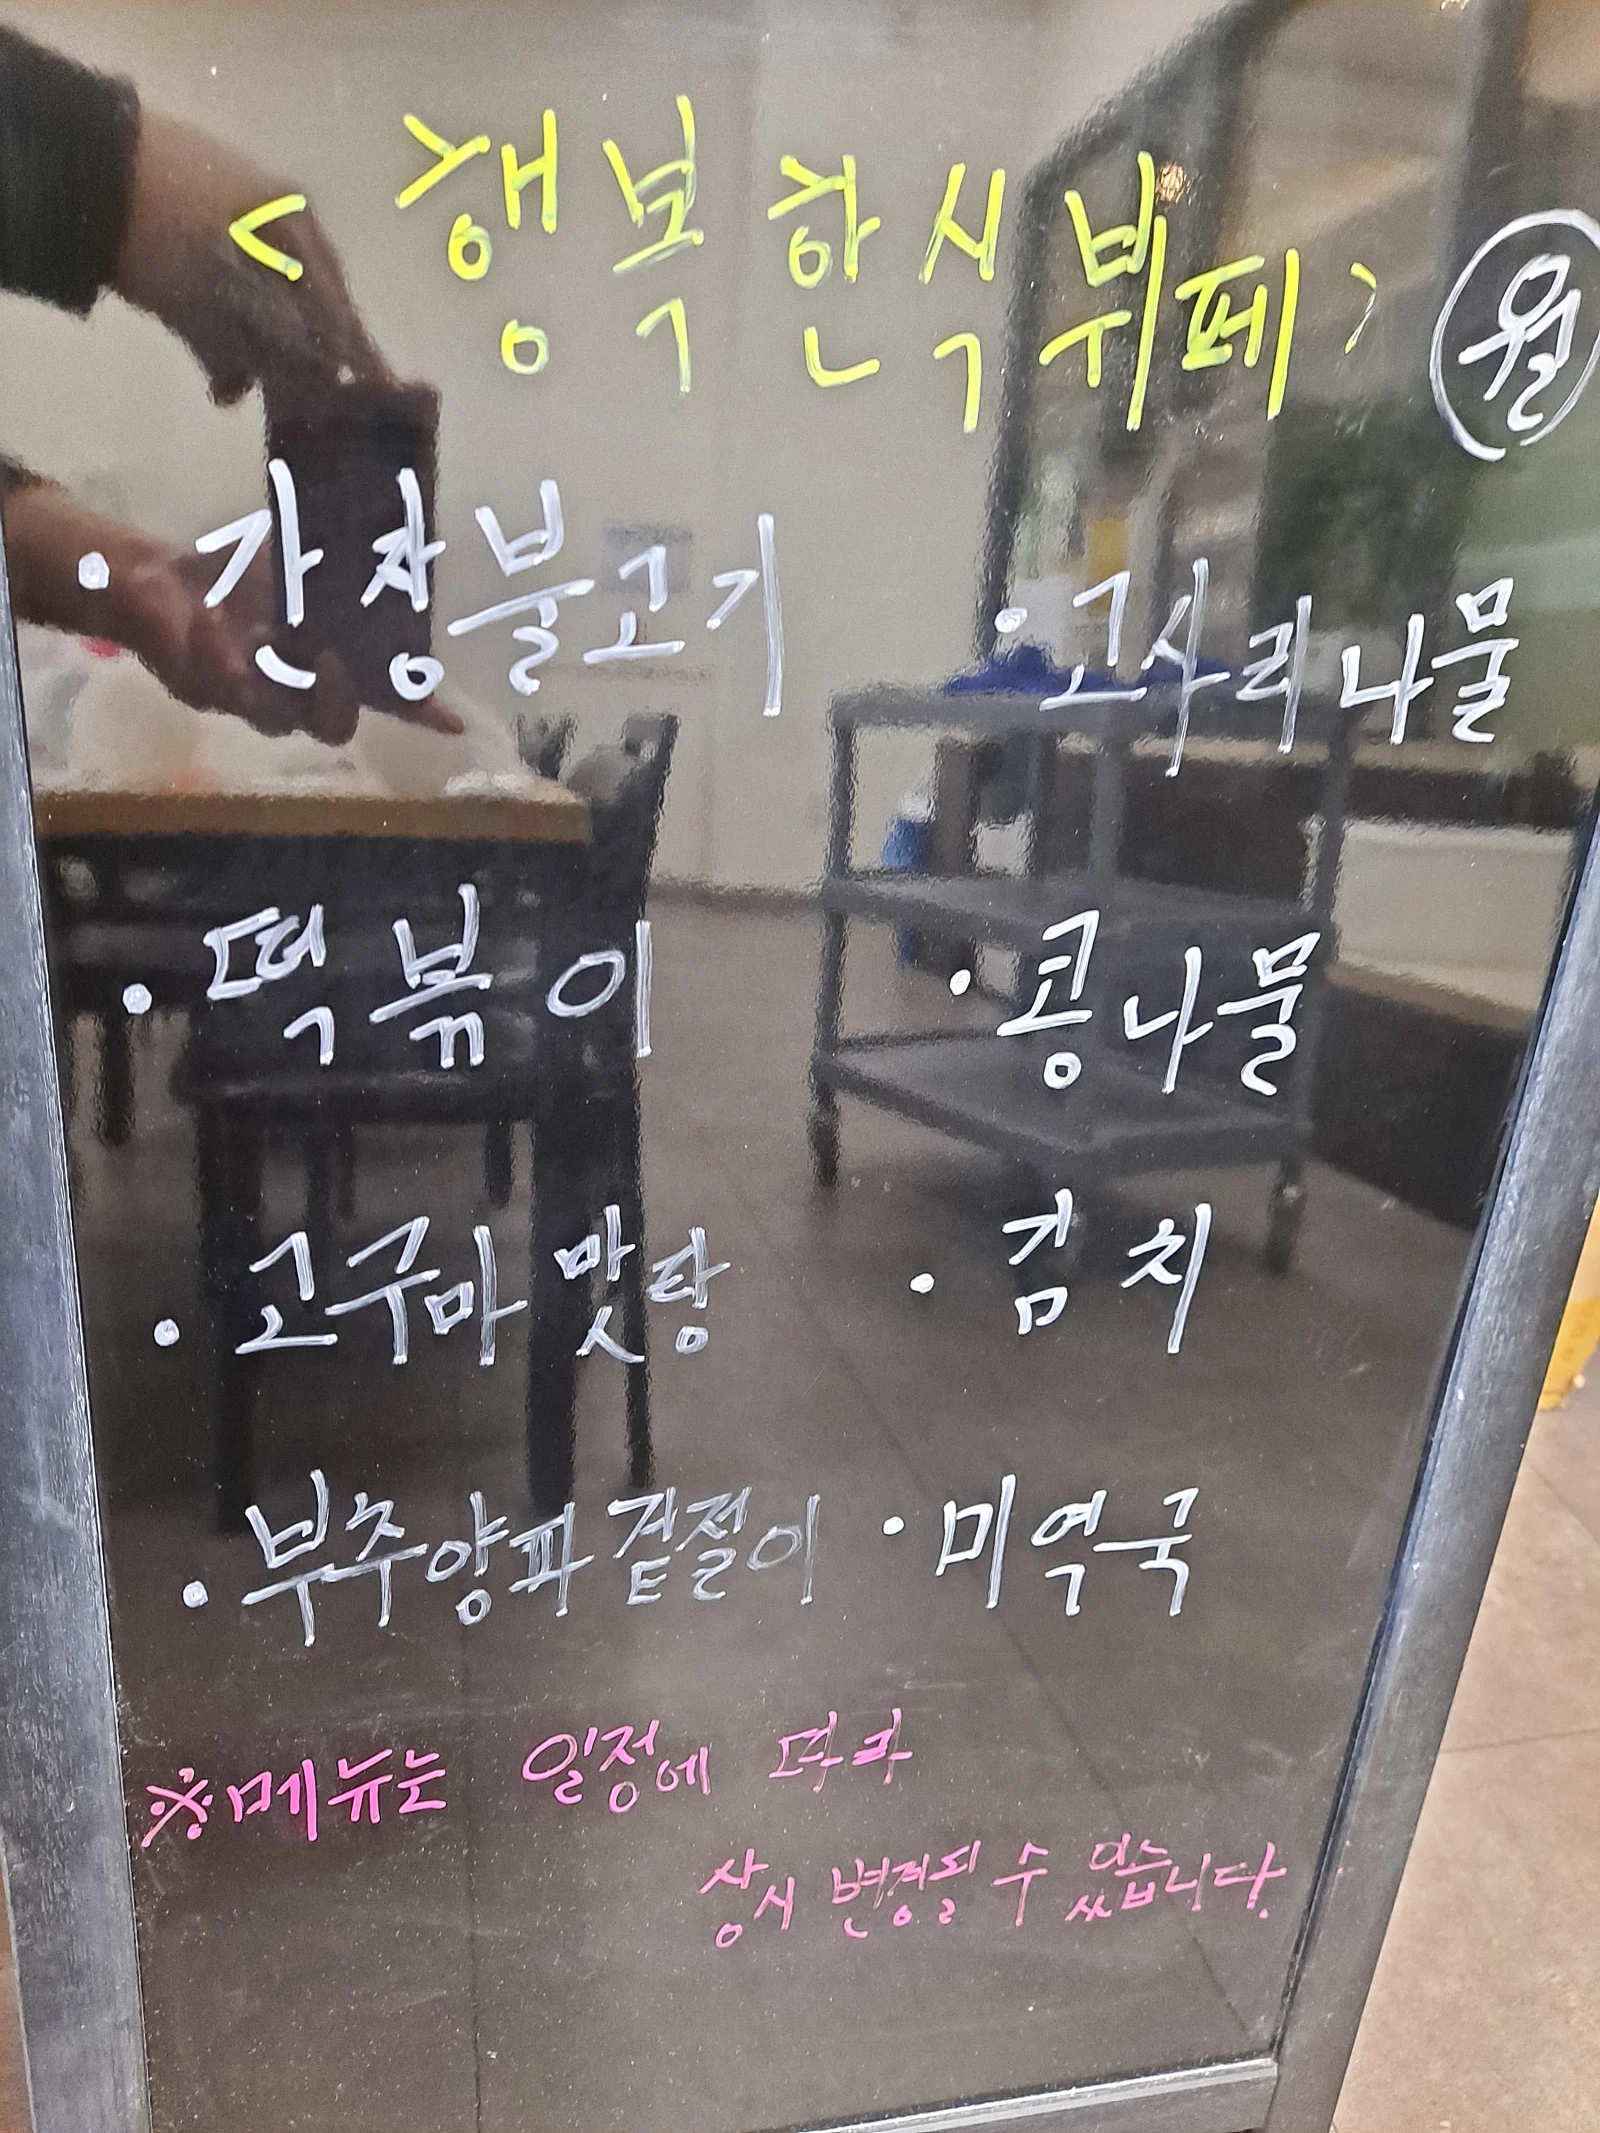 <행복한식뷔페> 월
· 간장불고기 · 고사리나물
· 떡볶이 · 콩나물
· 고구마맛탕 · 김치
· 부추양파겉절이 · 미역국
※메뉴는 일정에 따라
상시 변경될 수 있습니다.